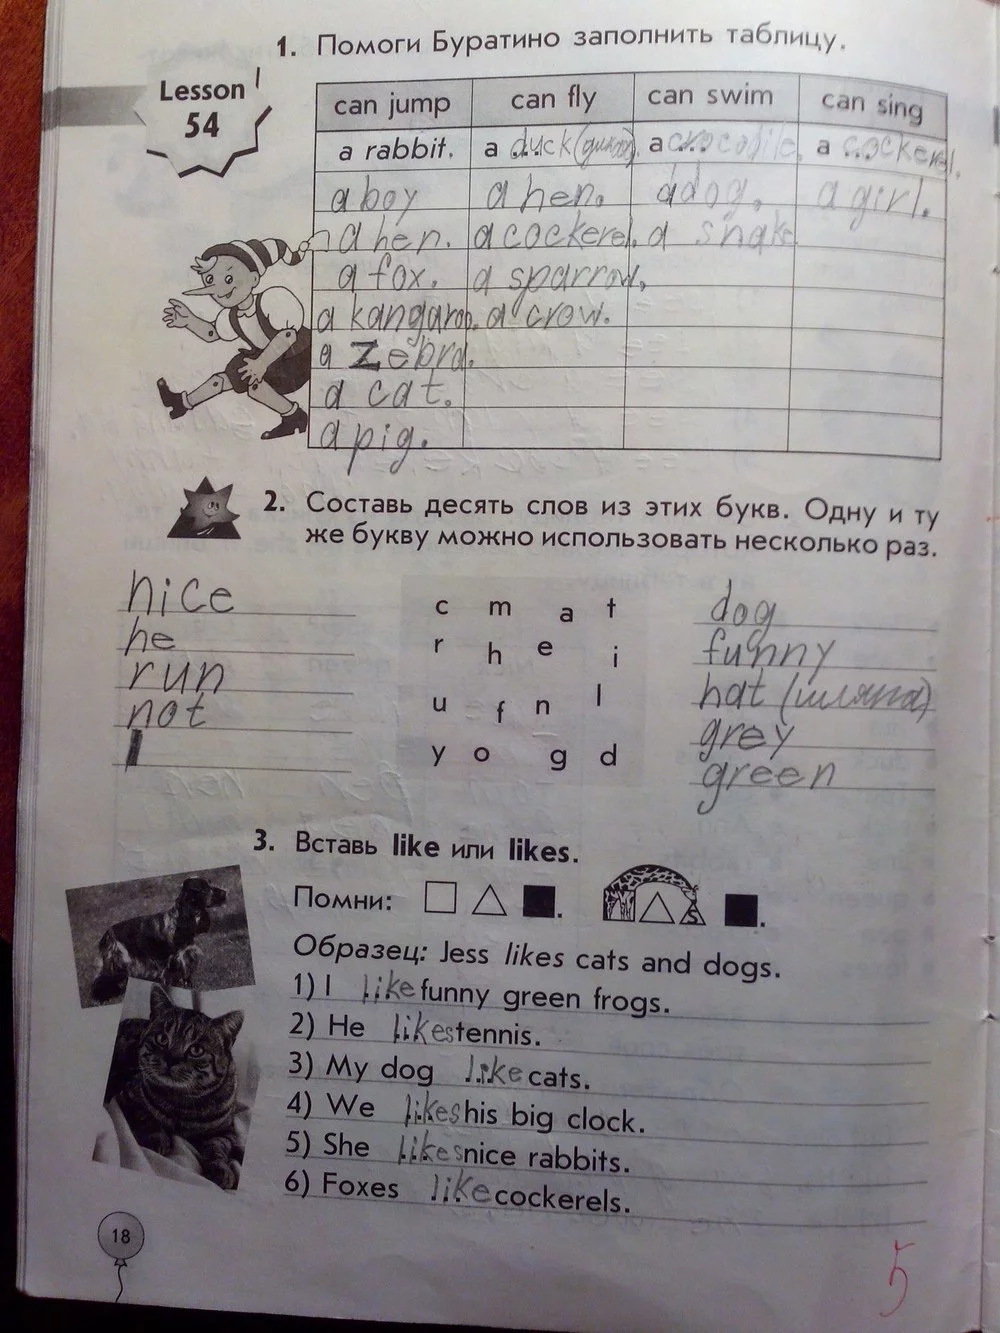 1. Помоги Буратино заполнить таблицу.
Lesson
54
can jump can fly can swim can sing
a rabbit. a duck a crocodile, a cockerel.
a boy a hen. a dog. a girl.
a hen. a cockerel. a snake
a fox. a sparrow.
a kangaroo. a crow.
a zebra.
a cat.
a pig.
2. Составь десять слов из этих букв. Одну и ту
же букву можно использовать несколько раз.
nice
he
run
not
c m a t
r h e i
u f n l
y o g d
dog
funny
hat (шляпа)
grey
green
3. Вставь like или likes.
Помни:
S
Образец: Jess likes cats and dogs.
1) I like funny green frogs.
2) He likes tennis.
3) My dog like cats.
4) We likes his big clock.
5) She likes nice rabbits.
6) Foxes like cockerels.
18
5